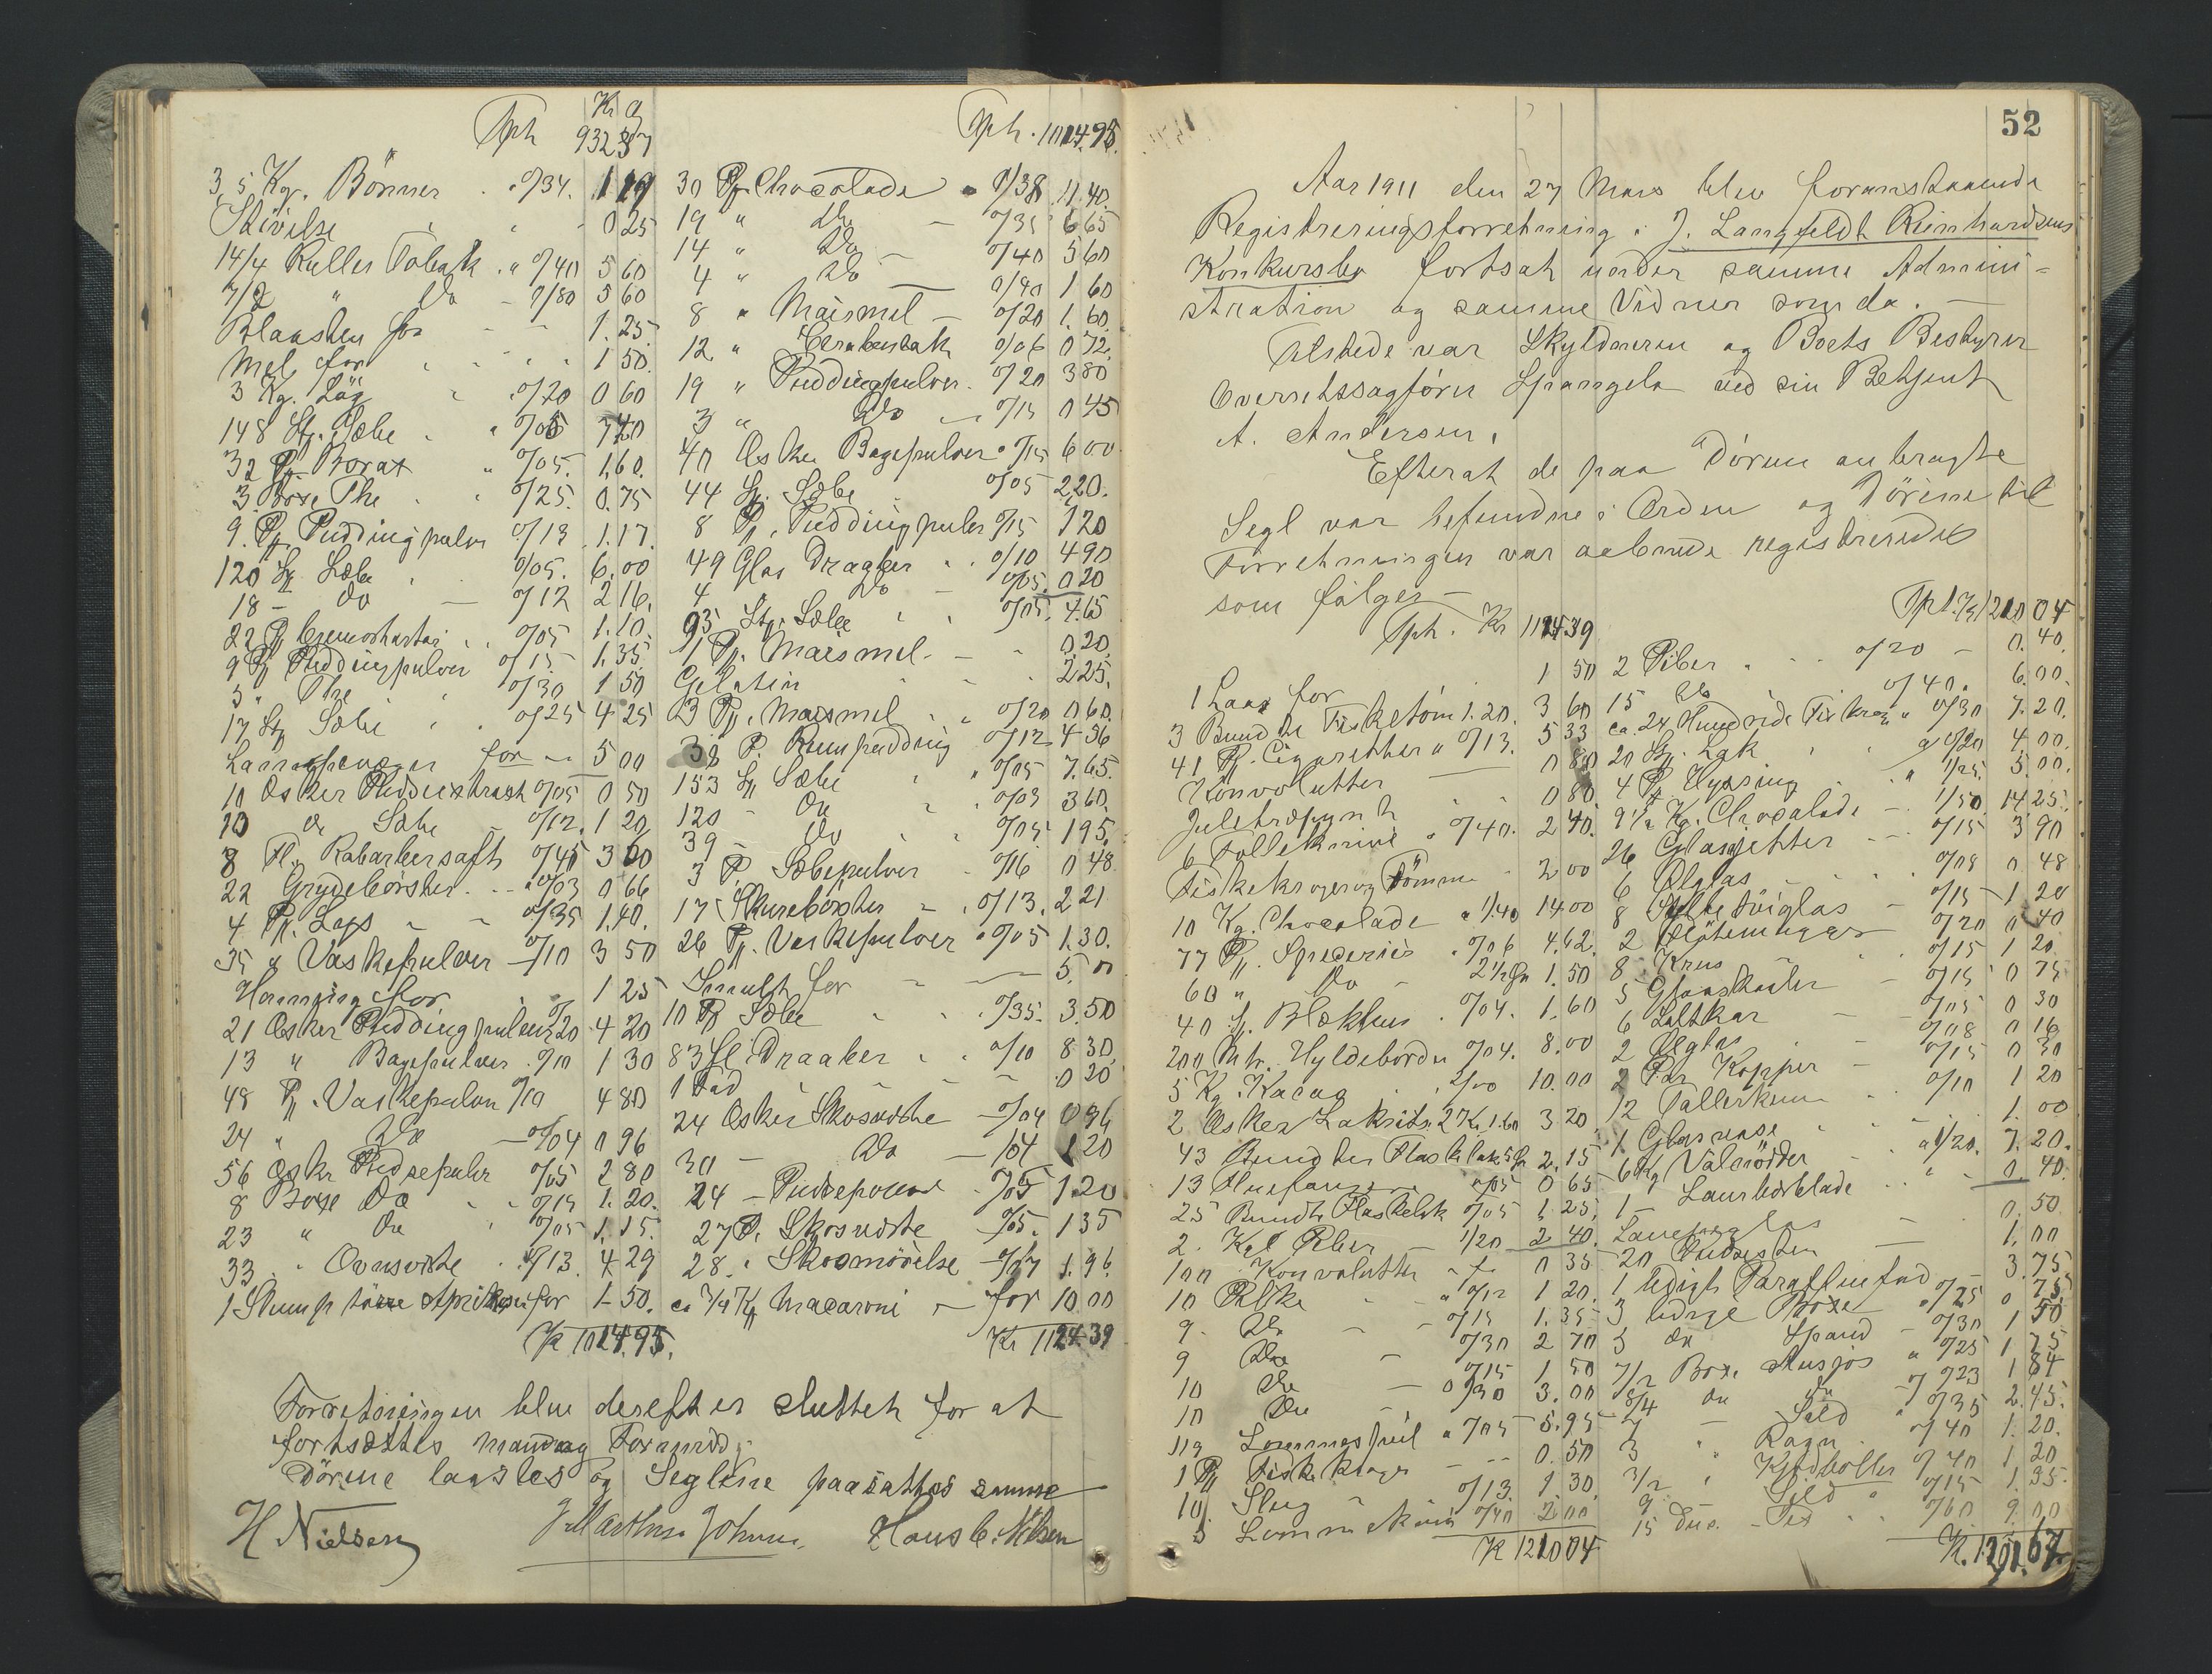 Kr Ø
Tph 932 37
3,5 Kg. Bönner " 0/34. 1 19
Stivelse " " 0 25
14/4 Ruller Tobak " 0/40 5 60
7/2 " Do - 0/80 5 60
Blaasten for - - 1.25
Mel for " " " " 1 50.
3 Kg. Lög " 0/20 0 60
148 St. Sæbe " " 0/05 7 40
32 Pk Borax " 0/05. 1.60.
3 Boxe The " " 0/25. 0.75
9. Pk Puddingpulver 0/13 1.17.
120 St Sæbe " 0/05. 6.00
18 - Do - 0/12 2 16.
22 Pk Cremortartari " 0/05 1.10
9 Pk Puddingpulver 0/15 1.35
5 " The " 0/30 1 50
17 St Sæbe " " 0/25 4 25
Lampevæger for - 5 00
10 Æsker 0/05 0 50
10 do Sæbe - 0/12. 1 20
8 Fl. Rabarbersaft 0/45 3 60
22 Grydebörster - - " 0/03 0 66
4 Pk. Laps - - 0/35 1.40.
35 " Vaskepulver - 0/10 3 50
Hamping for 1 25
21 Æsker Puddingpulver 0/20 4 20
13 " Bagepulver 0/10 1 30
48 Pk. Vaskepulver 0/10 4 80
24 " Do - 0/04 0 96
56 Æsker Pudsepulver 0/05 2 80
8 Boxe Do " " 0/15 1.20.
23 " Do " 0/05 1.15.
33. " Ovnsværte " 0/13. 4 29
1 Slump törre Aprikoser for 1-50.
Kr 1014.95.
Tph. 1014.95.
30 Pk Chocolade " 0/38 11.40.
19 " Do - 0/35 6 65
14 " Do - 0/40 5 60
4 " Do - 0/40 1 60
8 " Maismel - 0/20 1.60.
12. " 0/06 0 72.
19 " Puddingpulver. 0/20 3 80
3 " Do - 0/15 0 45
40 Æsker Bagepulver " 0/15 6 00
44 St. Sæbe " 0/05 2 20.
8 Pk. Puddingpulver 0/15 1 20
49 Glas Draaber " " 0/10 4 90
4 Do - 0/05. 0 20
93 St. Sæbe " " 0/05. 4.65
1 Pk. Maismel - - " 0.20.
Gelatin " " " 2 25.
3 Pk. Maismel " " 0/20 0 60.
38 P. Rumpudding 0/12 4 56
153 St Sæbe " " 0/05 7.65.
120 - Do " " 0/03 3 60.
39 - Do " " 0/05 1 95.
3 P. Sæbepulver - 0/16 0 48
17 Skurebörster - " 0/13. 2 21
26 Pk. Vaskepulver " 0/05 1.30.
Smult for - - 5.00
10 Pk Sæbe " " 0/35. 3.50
83 fl. Draaber " " 0/10 8 30.
1 Fad - - - 0 20
24 Æsker Skosværte - 0/04 0 96
30 - Do - /04 1 20
24 - Pudsepomade - 0/05 1.20
27 P. Skosværte - 0/5. 1 35
28. " Skosmörelse - 0/07 1.96.
ca 3/4 Kg Macaroni - for 10 00
Kr 1124.39
Forretningen blev derefter sluttet for at
fortsættes mandag Formidd.
Dörene laastes og Seglene paasattes samme
H Nielsen J. Marthin Johnsen Hans C. Nilsen
52
Aar 1911 den 27 Mars blev foranstaaende
Registreringsforretning i J. Langfeldt Reinhardsens
Konkursbo fortsat under samme Admini=
stration og samme Vidner som da. -
Tilstede var Skyldneren og Boets Bestyrer
Overretssagförer Spangelo ved sin Betjent
A. Andersen.
Efterat de paa Dörene anbragte
Segl var befundne i Orden og Dörene til
Forretningen var aabnede registreredes
som fölger -
Tph. Kr 1124 39
1 Laas for 1 50
3 Bundter Fisketöm 1.20. 3 60
41 Pk. Cigaretter " 0/13. 5 33
Konvolutter - 0 80
Juletræpynt " " 0 80
6 Folleknive " 0/40. 2 40.
Fiskekroger og Tömme - 2 00
10 Kg. Chocolade " 1/40 14 00
77 Pk. Specerier " 0/06 4.62.
60 " Do - 2 1/2 Ør 1.50
40 St. Blækhus " 0/04. 1.60
200 Mtr. Hyldeborder 0/04. 8.00
5 Kg. Kacao " 2/00 10.00
2 Æsker Lakrits 2 Kr. 1.60 3 20
43 Bundter Flaskelak 5 Ør 2.15
13 Fluefangere " 0/05 0 65
25 Bundter Flaskelak 0/05 1.25.
2. Kg Piber - 1/20 2 40.
100 Konvolutter - f. 0 35
10 Piber " " 0/12 1 20
9 - Do - - 0/15 1.35
9 Do - 0/30 2 70
10 Do 0/15 1 50
10 Do - 0/30 3.00
119 Lommespeil " 0/05 5.95
1 Pk Fiskekroger - - 0.50
10 Slug - 0/13. 1.30.
5 Lommekniv 0/40 2.00
Kr 1210 04
Tpt. Kr 1210 04
2 Piber " - - 0/20 - 0.40.
15 Do 0/40. 6.00.
ca. 24 Hundrede Fiskekrog " 0/30 7.20.
20 St. Lak " " a 0/20 4 00.
4 Pk Hyssing " " 1/25. 5.00.
9 1/2 Kg. Chocolade - 1/50. 14 25.
26 Glasjetter - - 0/15 3 90
6 Ölglas - - " 0/08 0 48
8 Syltetöiglas - 0/15 1 20
2 Flötemugger - 0/20 0 40
8 Krus " " 0/15 1 20
5 Glasskaaler - 0/15 0 75
6 Saltkar - - 0/05 0 30
2 Ölglas - 0/08 0 16
2 Par Kopper - 0/15 0 30
12 Tallerkener - " 0/10 1 20
1 Glasvase " " " 1.00
6 Kg Valnödder - " a 1/20. 7.20.
1 - Laurbærblade " " 0.40.
Lampeglas - 0.50
20 Pudsesten - 1.00
1 ledigt Parafinfad - 3.75
3 ledige Boxe " 0/25 0 75
5 do Spand - 0/30 1 50
7/1 Boxe Ansjos " 0/25 1 75
8/4 do Do - 0/23 1 84
7 - Sild " 0/35 2.45.
3 " Rogn " 0/40 1.20.
3/2 " Kjödboller 0/40 1 20
9 - Sild " 0/15 1.35
15 Dus. - Do " 0/60 9.00
K. 1291.67